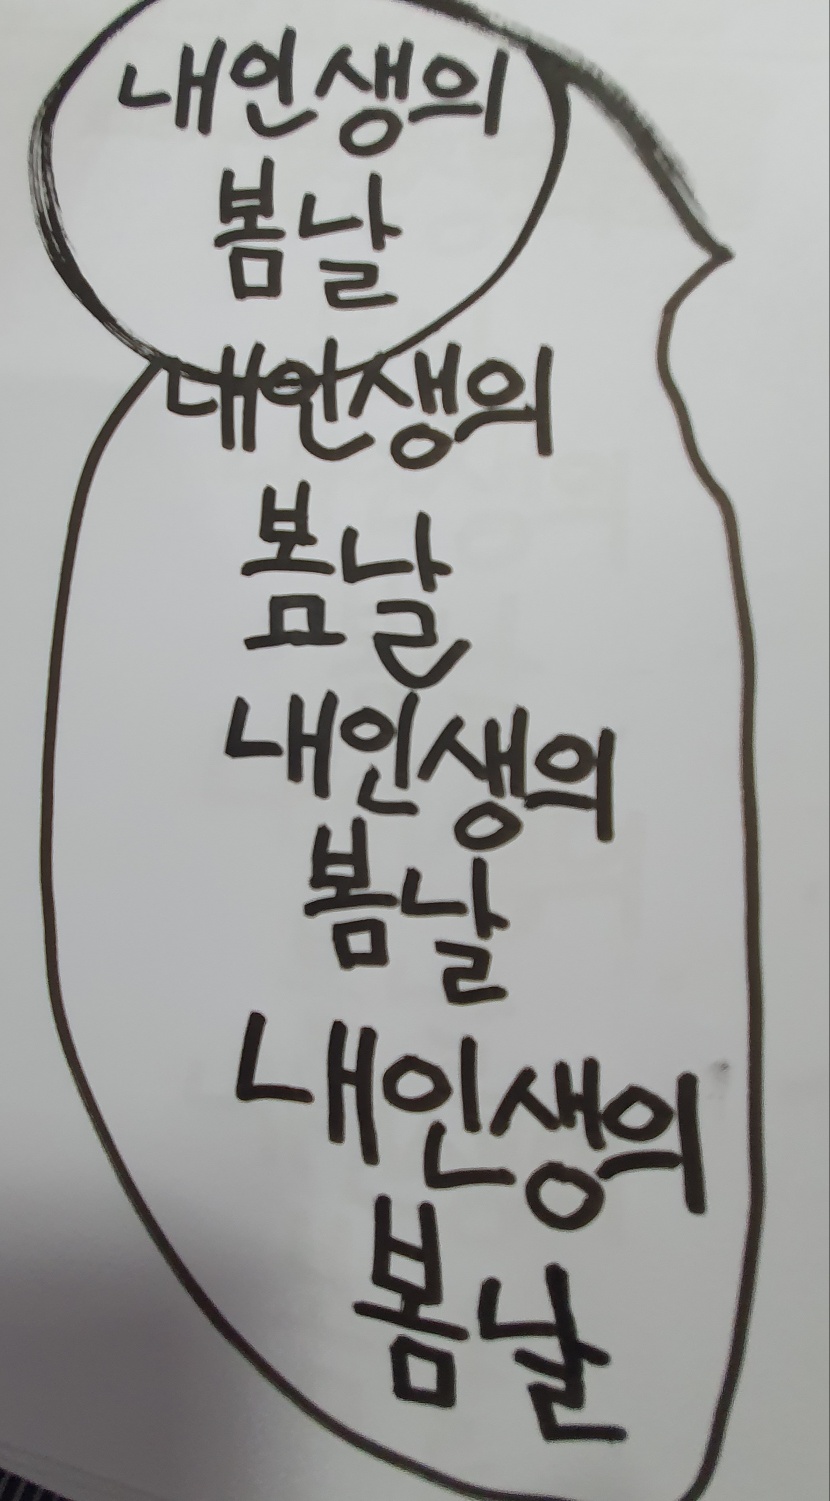 내인생의
봄날
내인생의
봄날
내인생의
봄날
내인생의
봄날